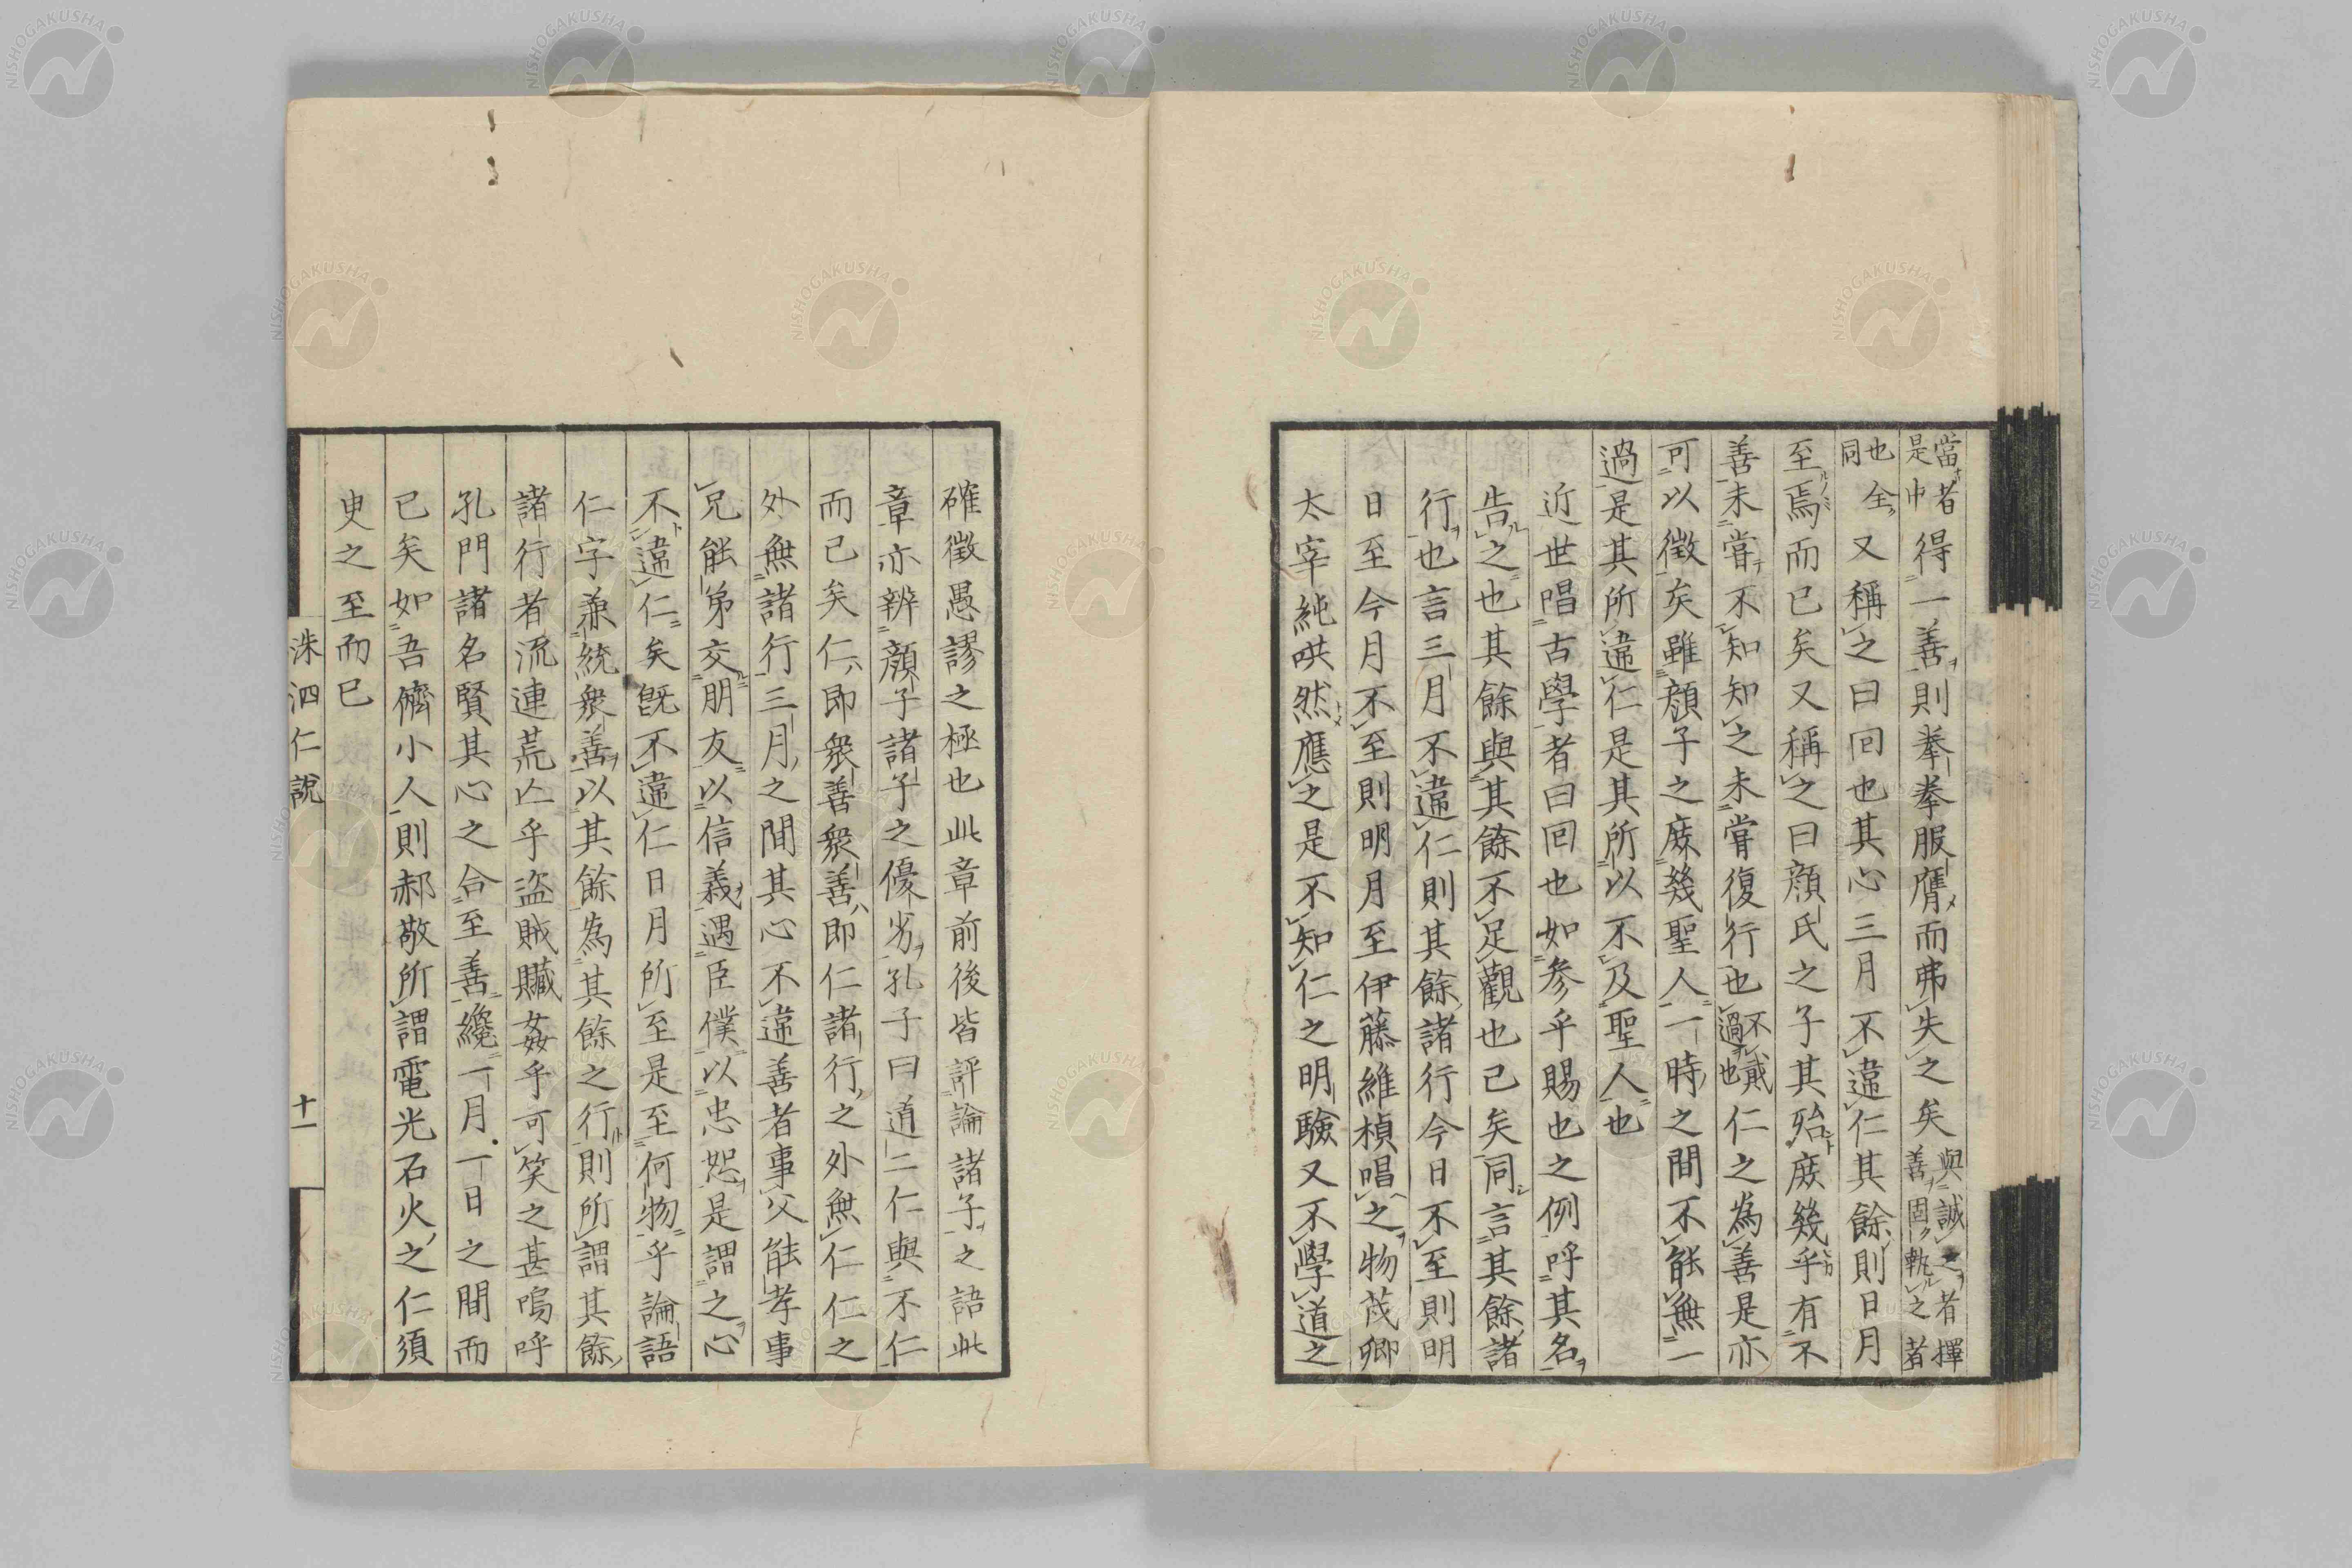 當者是巾得一善則拳拳服膺而弗失之矣與誠之者擇善固執之者
也全同又稱之曰回也其心三月不違仁其餘則日月
至焉而已矣又稱之曰顔氏之子其殆庶幾乎有不
善未嘗不知知之未嘗復行也不貳過也仁之為善是亦
可以徴矣雖顔子之庶幾聖人一時之間不能無一
過是其所違仁是其所以不及聖人也
近世唱古學者曰回也如參乎賜也之例呼其名
告之也其餘與其餘不足觀也已矣同言其餘諸
行也言三月不違仁則其餘諸行今日不至則明
日至今月不至則明月至伊藤維楨唱之物茂卿
太宰純哄然應之是不知仁之明驗又不學道之
確徴愚謬之極也此章前後皆評論諸子之語此
章亦辨顔子諸子之優劣孔子曰道二仁與不仁
而已矣仁即衆善衆善即仁諸行之外無仁仁之
外無諸行三月之間其心不違善者事父能孝事
兄能弟交朋友以信義遇臣僕以忠恕是謂之心
不違仁矣旣不違仁日月所至是至何物乎論語
仁字兼統衆善以其餘為其餘之行則所謂其餘
諸行者流連荒亡乎盜賊贓姦乎可笑之甚嗚呼
孔門諸名賢其心之合至善纔一月一日之間而
已矣如吾儕小人則郝敬所謂電光石火之仁須
臾之至而已
洙泗仁說
十一
NISHOGAKUSHA